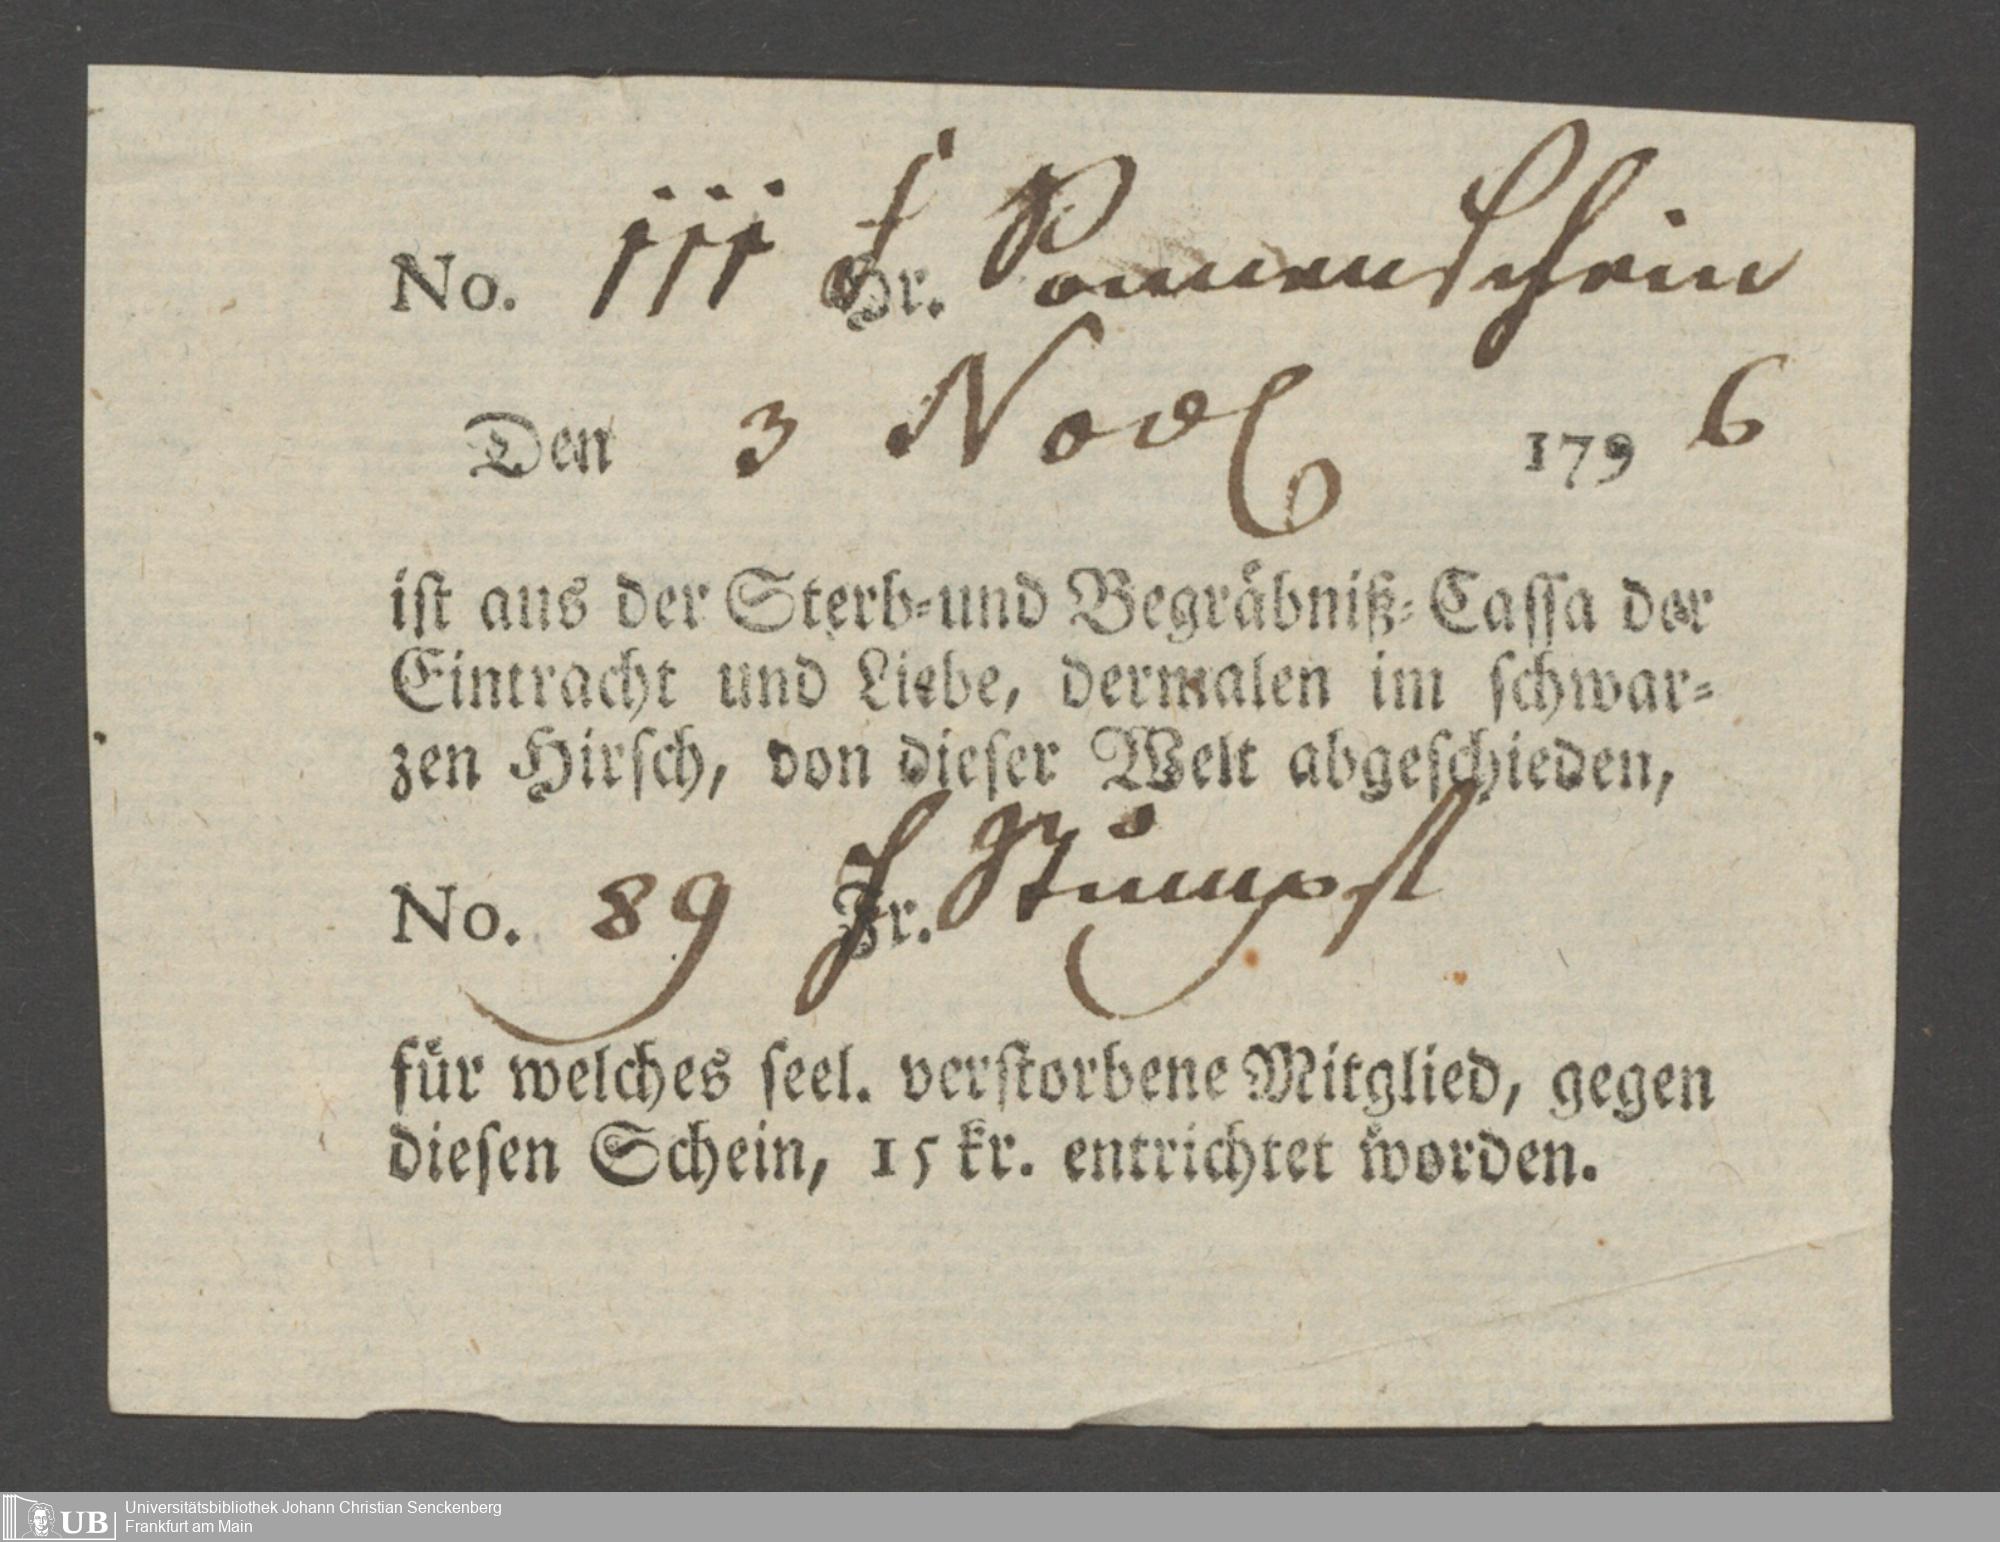 No. 111 Hr. Sonnenschein
Den 3 Novb 1796
ist aus der Sterb-und Begräbniß-Cassa der
Eintracht und Liebe, dermalen im schwar-
zen Hirsch, von dieser Welt abgeschieden,
No. 89 Fr. Stumpf
für welches seel. verstorbene Mitglied, gegen
diesen Schein, 15 kr. entrichtet worden.
UB Universitätsbibliothek Johann Christian Senckenberg
Frankfurt am Main